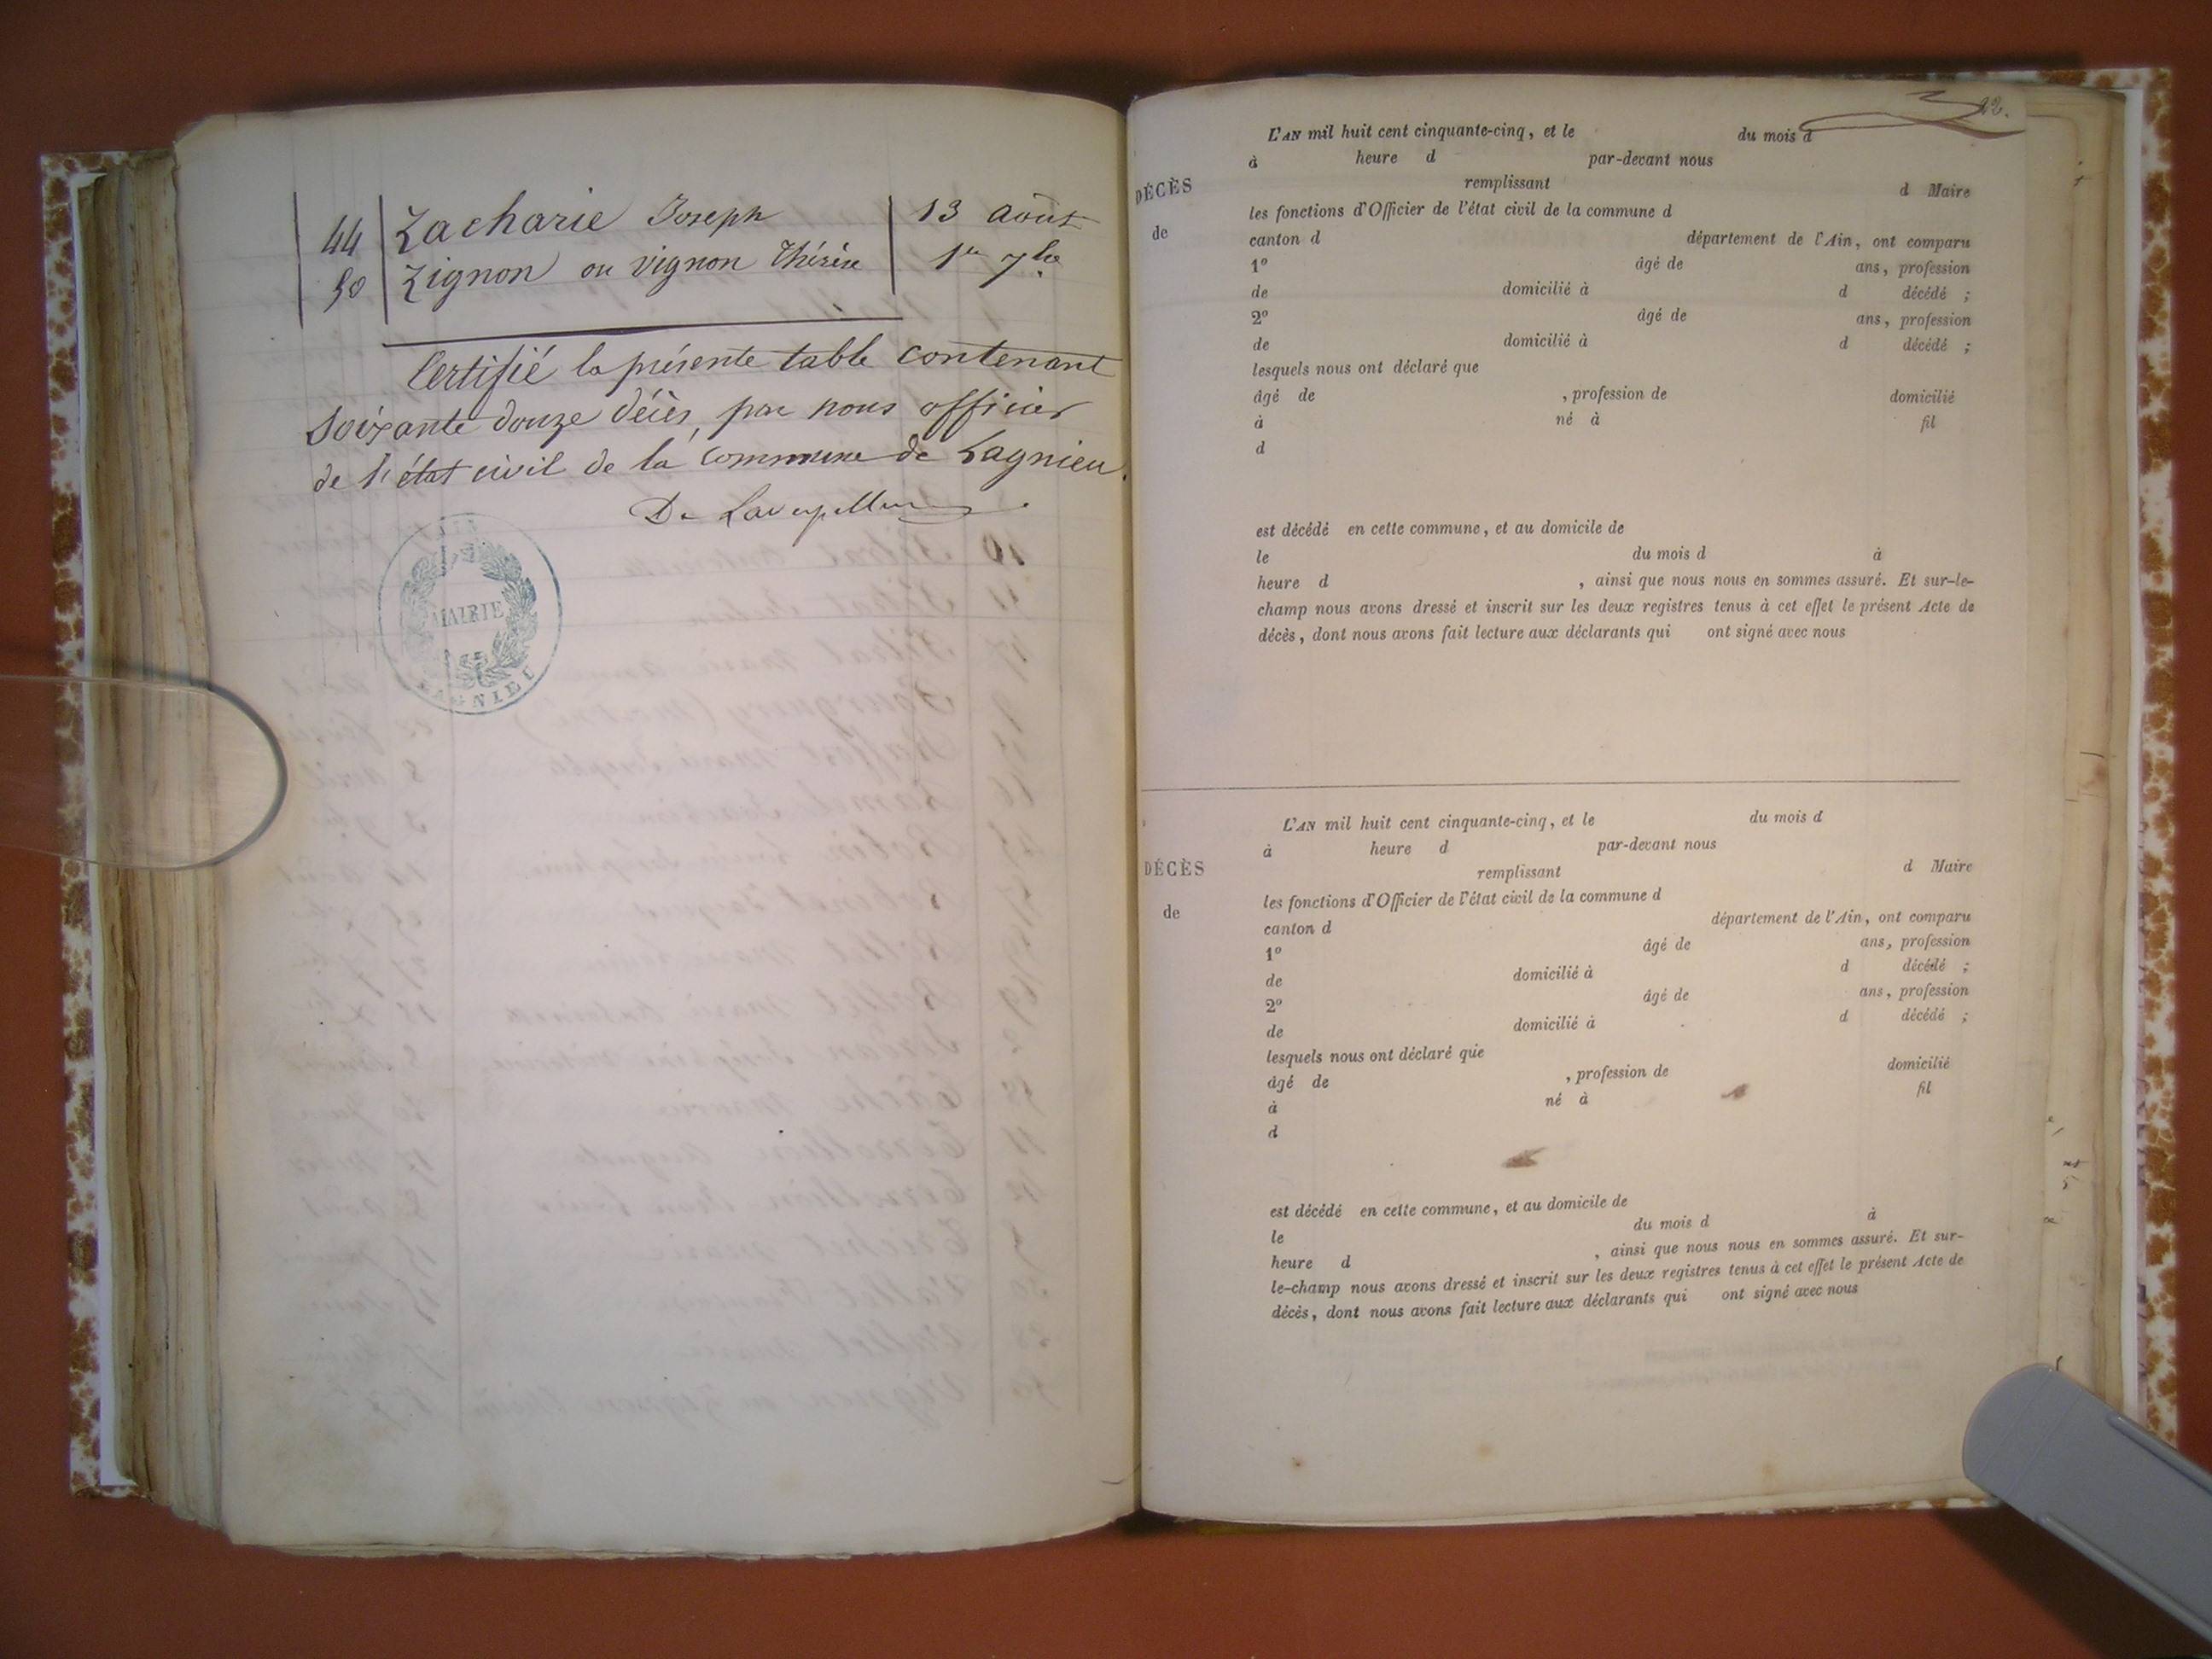 44 Zacharie Joseph 13 août
50 Zignon ou vignon Thérèse 1er 7bre
Certifié la présente table contenant
soixante douze décès, par nous officier
de l'état civil de la commune de Lagnieu.
AIN
MAIRIE
LAGNIEU
22.
L'AN mil huit cent cinquante-cinq, et le du mois d
à heure d par-devant nous
DÉCÈS
remplissant d Maire
les fonctions d'Officier de l'état civil de la commune d
de
canton d département de l'Ain, ont comparu
1º âgé de ans, profession
de domicilié à d décédé ;
2º âgé de ans, profession
de domicilié à d décédé ;
lesquels nous ont déclaré que
âgé de , profession de domicilié
à né à fil
d
est décédé en cette commune, et au domicile de
le du mois d à
heure d , ainsi que nous nous en sommes assuré. Et sur-le-
champ nous avons dressé et inscrit sur les deux registres tenus à cet effet le présent Acte de
décès, dont nous avons fait lecture aux déclarants qui ont signé avec nous
L'AN mil huit cent cinquante-cinq, et le du mois d
à heure d par-devant nous
DÉCÈS
remplissant d Maire
les fonctions d'Officier de l'état civil de la commune d
de
canton d département de l'Ain, ont comparu
1º âgé de ans, profession
de domicilié à d décédé ;
2º âgé de ans, profession
de domicilié à d décédé ;
lesquels nous ont déclaré que
âgé de , profession de domicilié
à né à fil
d
est décédé en cette commune, et au domicile de
le du mois d à
heure d , ainsi que nous nous en sommes assuré. Et sur-
le-champ nous avons dressé et inscrit sur les deux registres tenus à cet effet le présent Acte de
décès, dont nous avons fait lecture aux déclarants qui ont signé avec nous